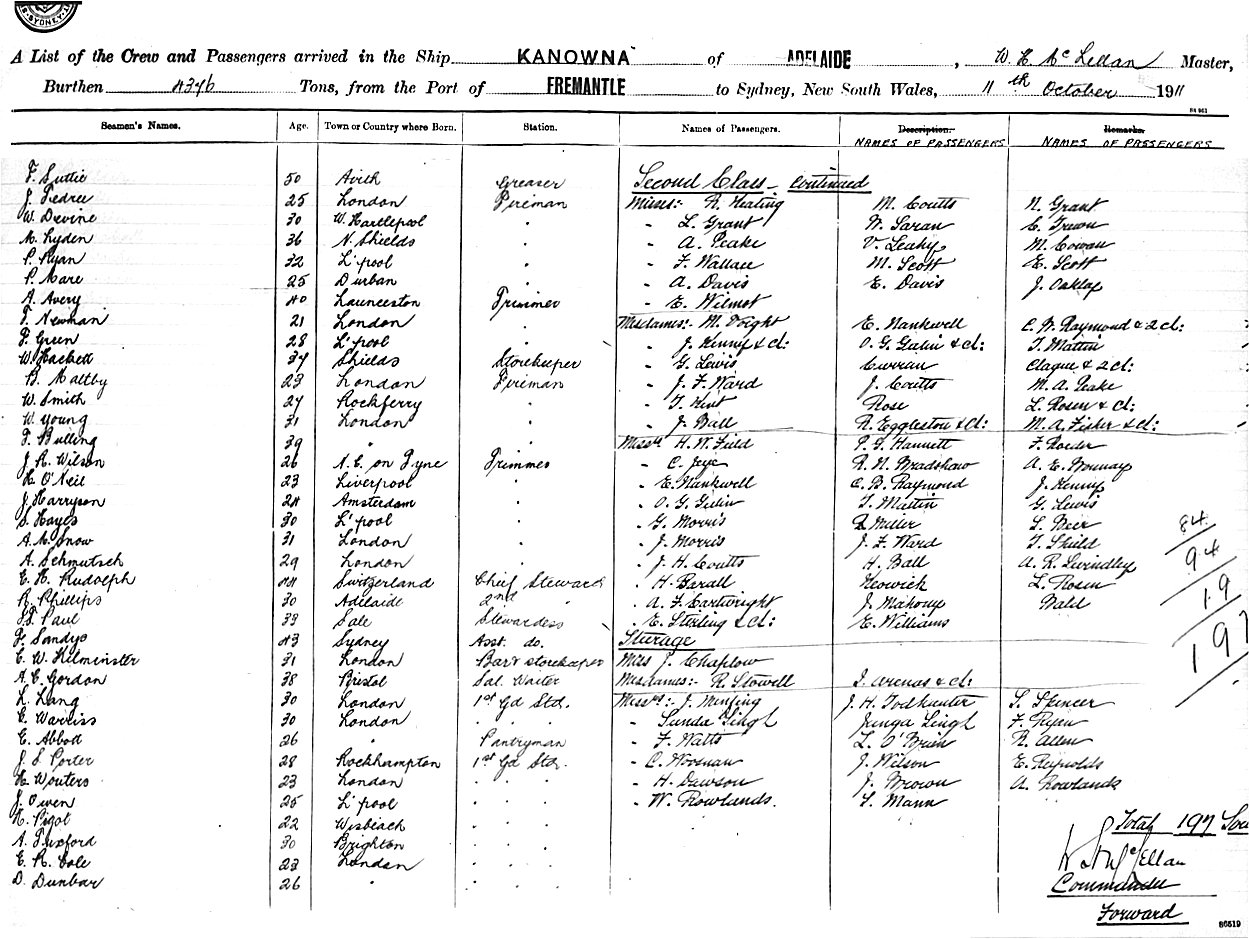 SYDNEY
A List of the Crew and Passengers arrived in the Ship KANOWNA of ADELAIDE, W. McLellan Master,
Burthen 4346 Tons, from the Port of FREMANTLE to Sydney, New South Wales, 11th October 1911
Seamen's Names. Age. Town or Country where Born. Station. Names of Passengers. Description. Remarks.
NAMES OF PASSENGERS NAMES OF PASSENGERS
F. Suttie 50 Greaser Second Class - continued
J. Pedree 25 London Fireman Misses:- R. Keating M. Coutts N. Grant
W. Devine 30 W. Hartlepool " - L. Grant W. Saran E. Trewn
M. Lyden 36 N. Shields " - A. Peake V. Leahy M. Cowan
P. Ryan 32 L'pool " - F. Wallace M. Scott E. Scott
P. Mare 25 Durban " - A. Davis E. Davis J. Oaklay
A. Avery 40 Launceston Trimmer - E. Wilmot
T. Newman 21 London " Mesdames:- M. Voight E. Nankwell C. W. Raymond & 2 cl:
F. Green 28 L'pool " - J. Kenny & cl: O. G. & cl: T. Mattin
W. Hackett 34 Shields Storekeeper - G. Lewis Curran Clague & 2 cl:
B. Maltby 23 London Fireman - J. F. Ward J. Coutts M. A. Peake
W. Smith 27 Rockferry " - T. Rose L. Rosen & cl:
W. Young 31 London " - J. Ball R. Eggleston & cl: M. A. Fisher & cl:
T. Bulling 39 " " Messrs H. W. Field P. G. Hannett F. Roeder
J. R. Wilson 26 N.C. on Tyne Trimmer - C. Jeye R. N. Bradshaw A. E.
H. O'Neil 23 Liverpool " - E. Nankwell C. B. Raymond J. Kenny
J. Harryson 24 Amsterdam " - O. G. T. Martin G. Lewis
S. Hayes 30 L'pool " - G. Morris R. Miller L. Beer
A. M. Snow 31 London " - J. Morris J. F. Ward T. Shield
A. Schmutsch 29 London " - J. H. Coutts H. Ball A. R. Swindley
E. H. Rudolph 44 Switzerland Chief Steward - H. Barall Keowick L. Rosen
R. Phillips 30 Adelaide 2nd " - A. F. Cartwright J. Mahony
S. Paul 33 Sale Stewardess - E. Stirling & cl: E. Williams
G. Sandys 43 Sydney Asst. do. Steerage
C. W. Kilminster 31 London Bar & storekeeper Miss J. Chaplow
A. C. Gordon 38 Bristol Sal. Waiter Mesdames:- R. Stowell J. Arenas & cl:
L. Lang 30 London 1st Gd Std. Messrs:- J. Minfing J. H. Todhunter S. Spencer
G. Warriss 30 London " " - Sunda Singh Junga Singh F. Ryan
E. Abbott 26 " Pantryman - F. Watts L. O'Brien R. Allen
J. S. Porter 28 Rockhampton 1st Gd Std. - C. Woonan J. Wilson E. Reynolds
H. Wouters 23 London " " " - H. Dawson J. Brown A. Rowlands
J. Owen 25 L'pool " " " - W. Rowlands. S. Mann
H. Pigot 22 Wisbeach " " "
A. Tuxford 30 Brighton " " "
E. R. Cole 23 London " " "
D. Dunbar 26 " " " "
84
94
19
197
Total 197 Sou
McLellan
Commander
Forward
86519